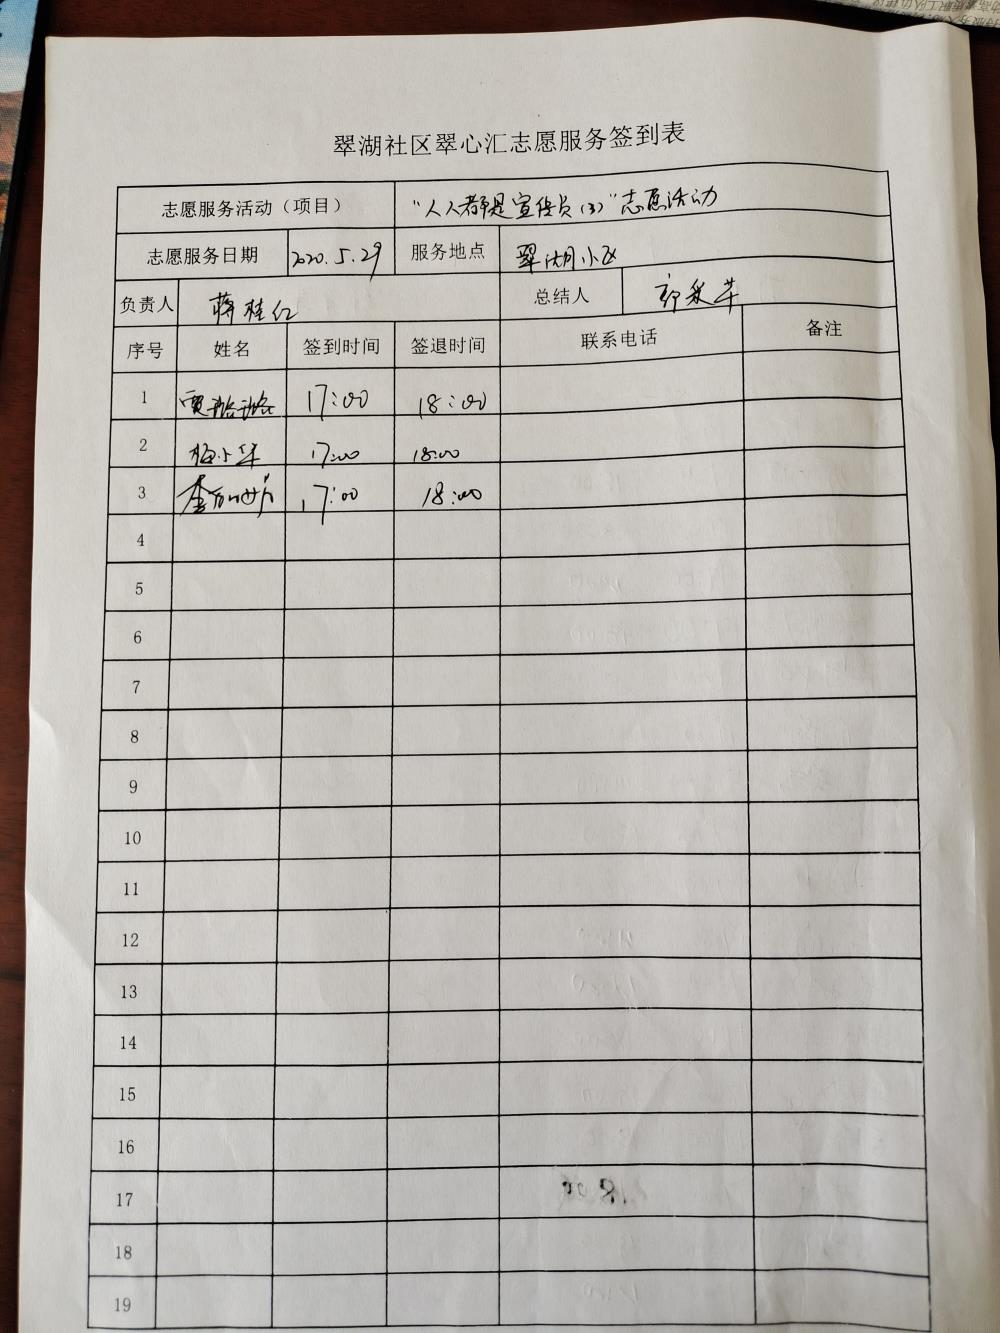 翠湖社区翠心汇志愿服务签到表
志愿服务活动（项目） “人人都是宣传员（3）”志愿活动
志愿服务日期 2020.5.29 服务地点 翠湖小区
负责人 蒋桂红 总结人
序号 姓名 签到时间 签退时间 联系电话 备注
1 17:00 18:00
2 梅小华 17:00 18:00
3 17:00 18:00
4
5
6
7
8
9
10
11
12
13
14
15
16
17
18
19